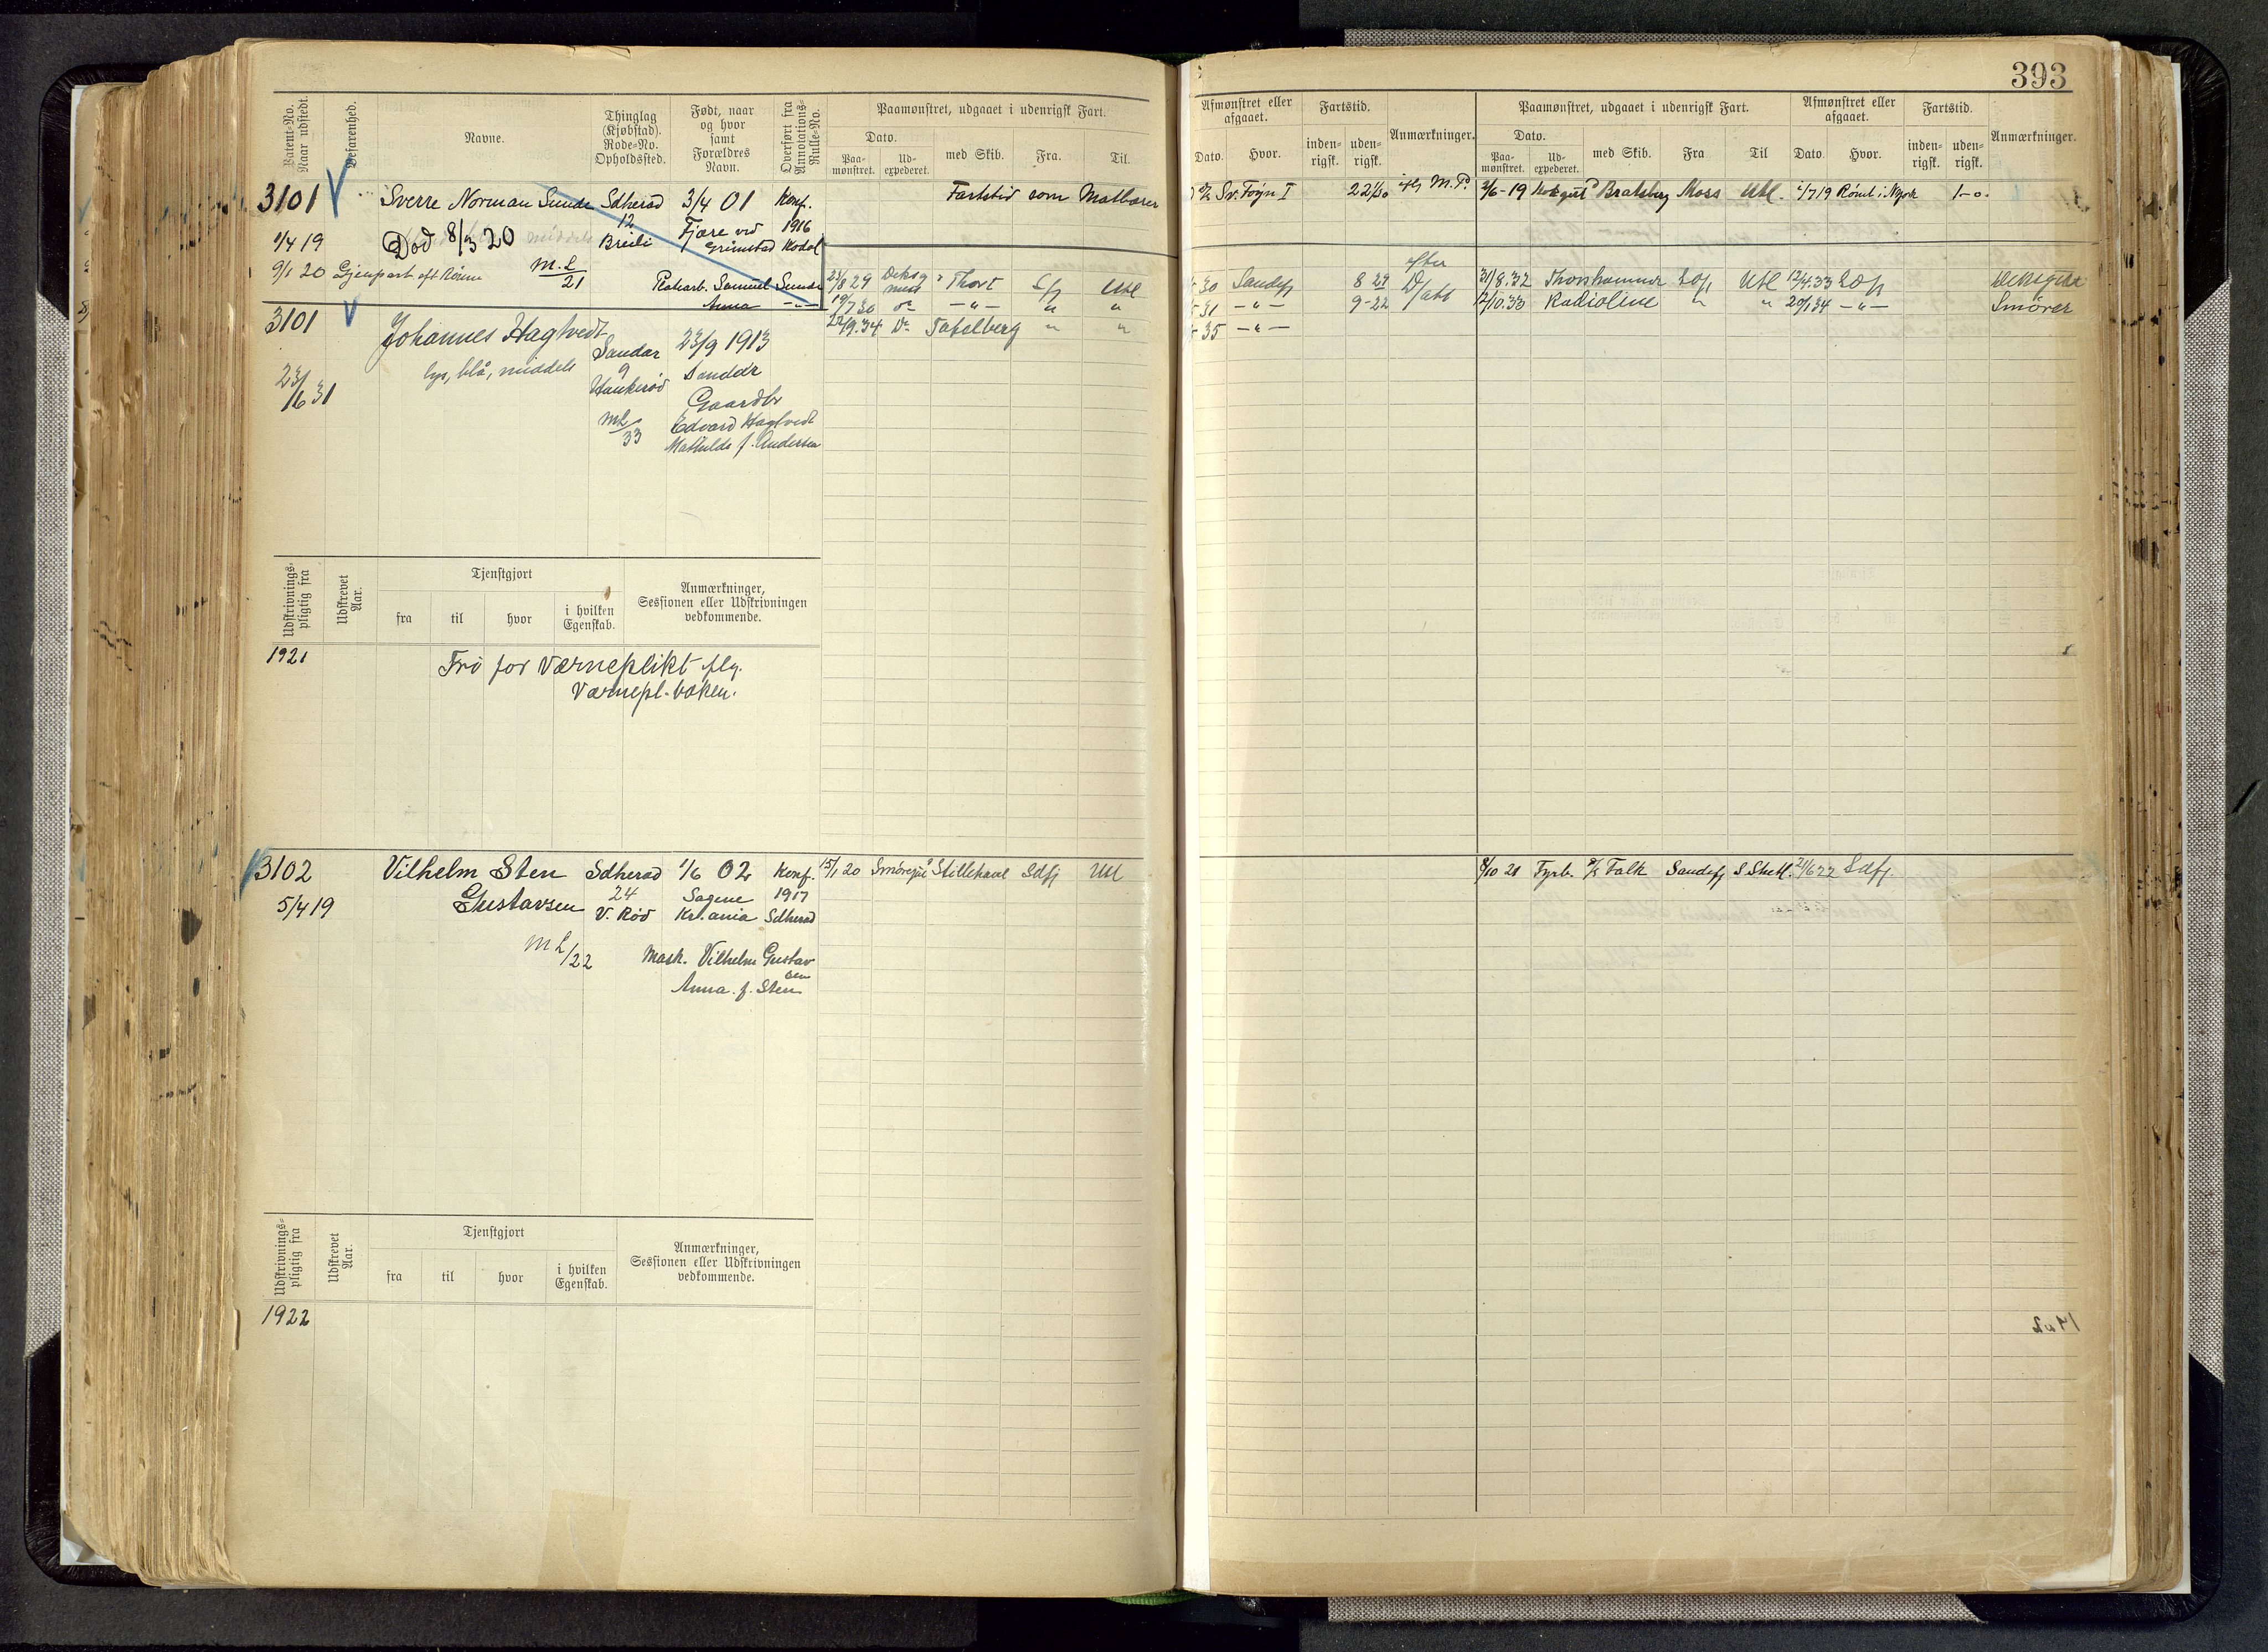 393
Patent-No. Naar udstedt.
Befarenhed.
Navne.
Thinglag (Kjøbstad). Rode-No. Opholdssted.
Født, naar og hvor samt Forældres Navn.
Overført fra Annotations-Rulle-No.
Paamønstret, udgaaet i udenrigsk Fart.
Dato.
Paa-mønstret.
Ud-expederet.
med Skib.
Fra.
Til.
Afmønstret eller afgaaet.
Dato.
Hvor.
Fartstid.
inden-rigsk.
uden-rigsk.
Anmærkninger.
Paamønstret, udgaaet i udenrigsk Fart.
Dato.
Paa-mønstret.
Ud-expederet.
med Skib.
Fra
Til
Afmønstret eller afgaaet.
Dato.
Hvor.
Fartstid.
inden-rigsk.
uden-rigsk.
Anmærkninger.
3101 Sverre Norman Sunde Sdherad 3/4 01 Konf. Fartstid som Matbærer
12 Fjære ved 1916
1/4 19 Død 8/3 20 Breili Grimstad Kodal
9/1 20 Gjenpart eft Rømn M.L 21 Samuel Sunde
Anna -"-
Sv. Foyn I M.P. 3/6-19 Bratsberg Moss Utl. 1/7 19 Rømt i N.york 1-0-
3101 Johannes Hagtvedt Sandar 23/9 1913
lys, blå, middels 9 Sandar
23/6 31 Haukerød Gaardbr
ML 33 Edvard Hagtvedt
Mathilde f. Andersen
23/8 29 Thort Sfj Utl
19/7 30 do -"- " "
22/9.34 Do Tafelberg " "
30 Sandefj 8 29 efter
31 -"- 9-22 D/att
35 -"-
31/8.32 Thorshammer Sdfj Utl 12/4.33 Sdfj Deksgutt
12/10.33 Radioline " " 20/1 34 -"- Smører
Udskrivnings-pligtig fra
Udskrevet Aar.
Tjenstgjort
fra
til
hvor
i hvilken Egenskab.
Anmærkninger, Sessionen eller Udskrivningen vedkommende.
1921 Fri for værneplikt flg.
Værnepl-boken.
3102 Vilhelm Sten Sdherad 1/6 02 Konf. 15/1 20 Smøregut Stillehavet Sdfj Utl
24 Sagene 1917
5/4 19 Gustavsen V. Rød Kr.ania Sdherad
ML/22 Mask. Vilhelm Gustav
sen
Anna f. Sten
8/10 21 Fyrb. Falk Sandefj S Shetl. 21/6 22 Sdfj.
Udskrivnings-pligtig fra
Udskrevet Aar.
Tjenstgjort
fra
til
hvor
i hvilken Egenskab.
Anmærkninger, Sessionen eller Udskrivningen vedkommende.
1922